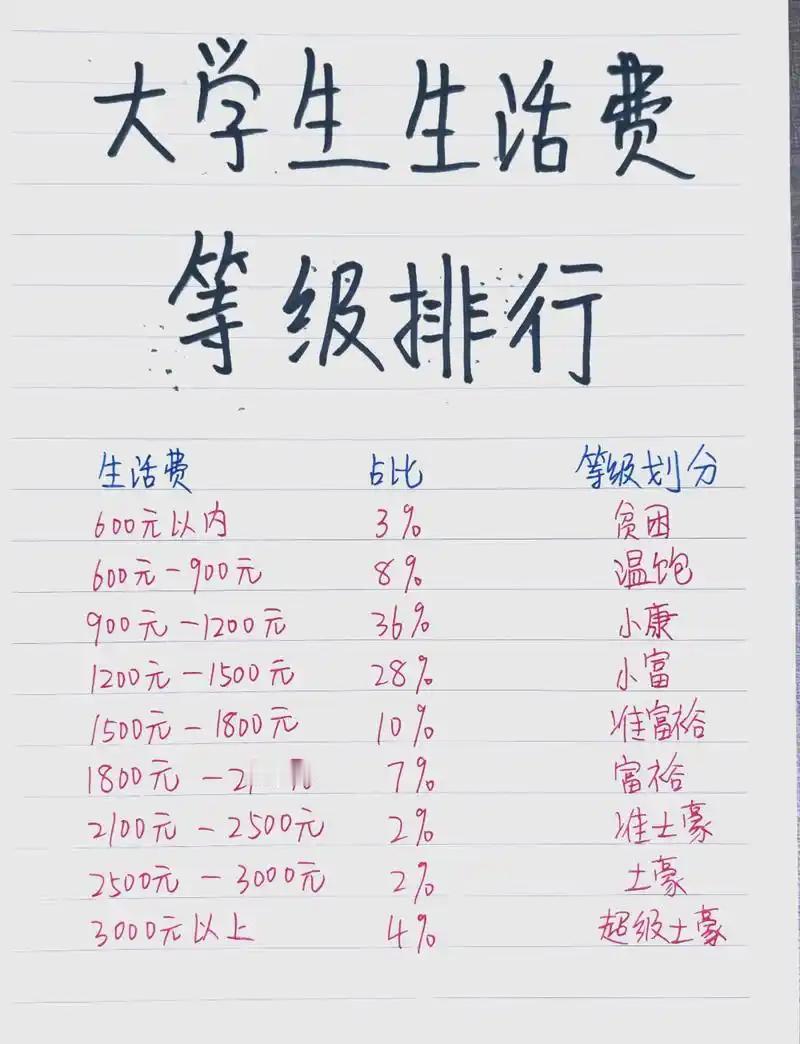 大学生生活费
等级排行
生活费 占比 等级划分
600元以内 3% 贫困
600元-900元 8% 温饱
900元-1200元 36% 小康
1200元-1500元 28% 小富
1500元-1800元 10% 准富裕
1800元-2 7% 富裕
2100元-2500元 2% 准土豪
2500元-3000元 2% 土豪
3000元以上 4% 超级土豪